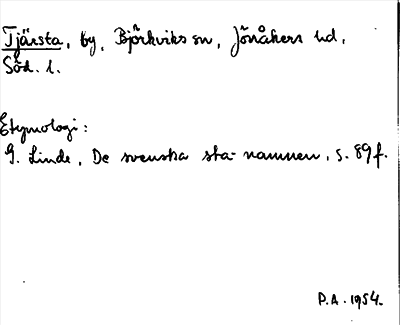 Tjärsta, by, Björkviks sn, Jönåkers hd,
Söd. l.
Etymologi:
G. Linde, De svenska sta-namnen, s. 89 f.
P.A. 1954.